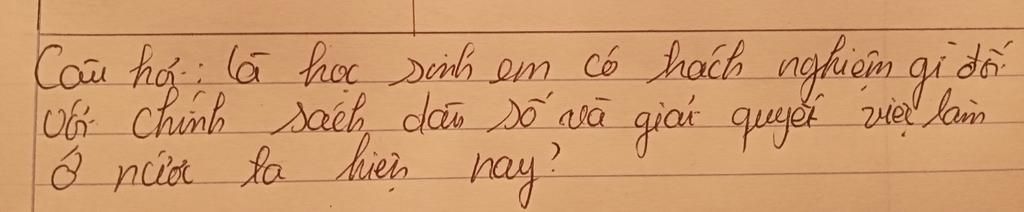 Câu hỏi: là học sinh em có trách nghiệm gì đối
với chính sách dân số và giải quyết việc làm
ở nước ta hiện nay?